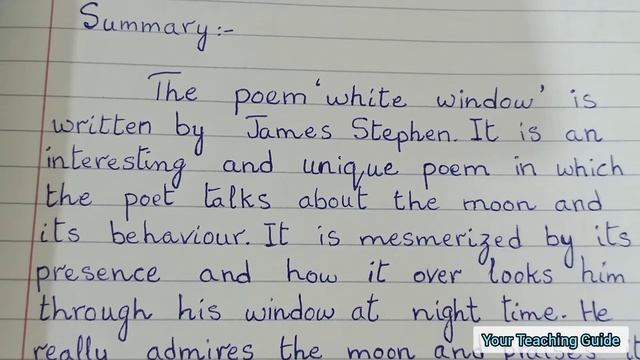 Summary:-
The poem 'white window' is
written by James Stephen. It is an
interesting and unique poem in which
the poet talks about the moon and
its behaviour. It is mesmerized by its
presence and how it over looks him
through his window at night time. He
really admires the moon and
Your Teaching Guide